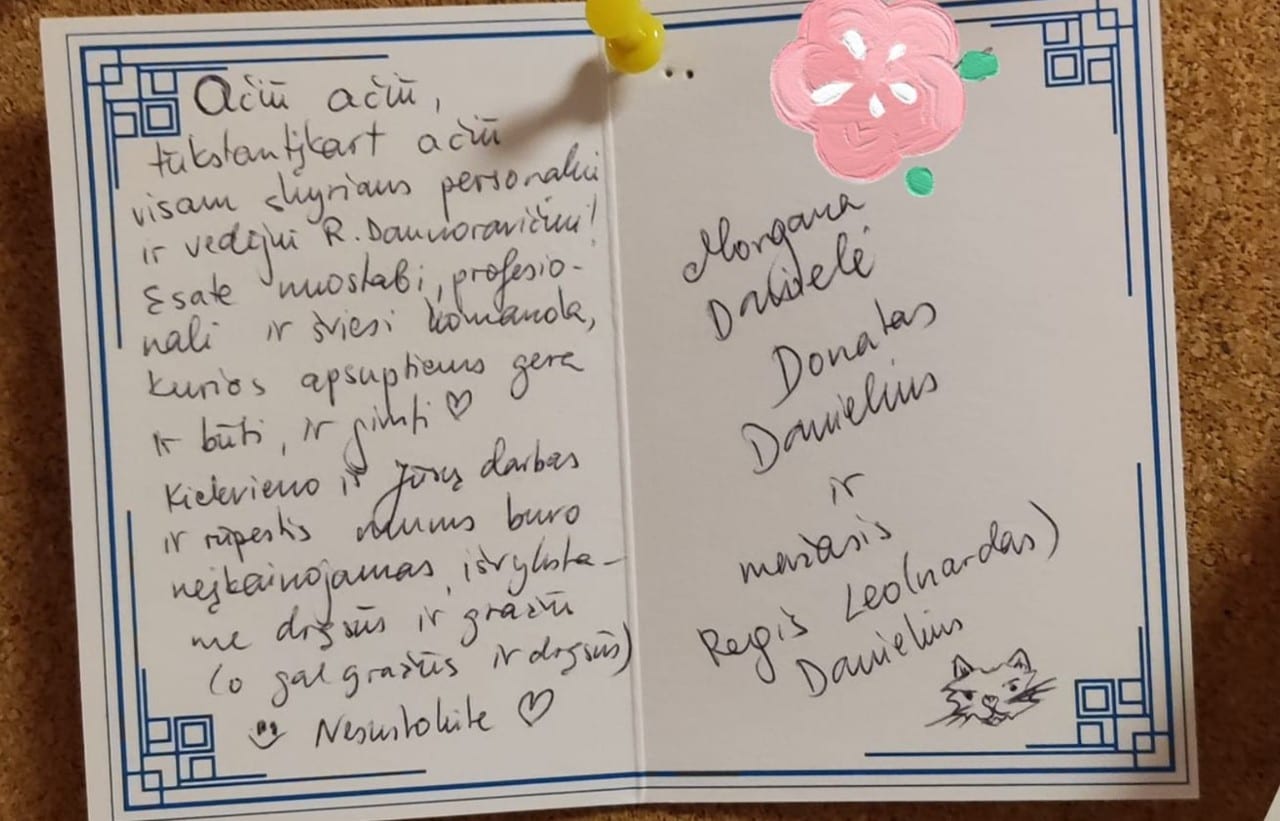 Ačiū ačiū,
tūkstantįkart ačiū
visam skyriaus personalui
ir vedėjui R. Daunoravičiui!
Esate nuostabi, profesio-
nali ir šviesi komanda,
kurios apsuptiems gera
ir būti, ir gimti ♡
Kiekvieno iš Jūsų darbas
ir rūpestis mums buvo
neįkainojamas, išvyksta-
me drąsūs ir gražūs
(o gal gražūs ir drąsūs)
Nesustokite ♡
Morgana
Danielė
Donatas
Danielius
ir
mažasis
Regis Leo(nardas)
Danielius